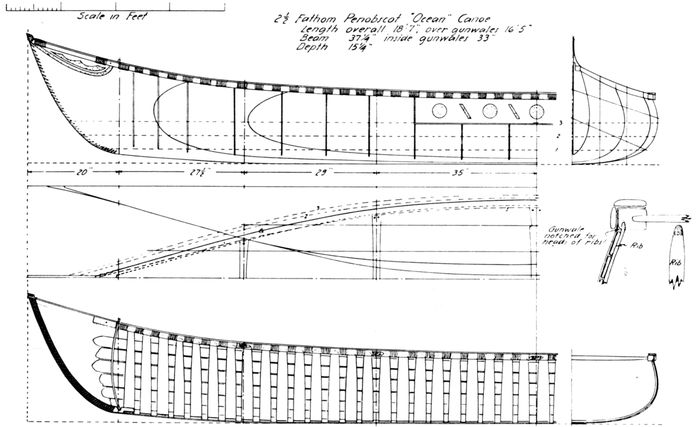 Scale in Feet
2½ Fathom Penobscot "Ocean" Canoe
Length overall 18'7", over gunwales 16'5"
Beam 37¼" inside gunwales 33"
Depth 15¼"
3
2
1
20"
27½"
29"
35"
3
2
1
Gunwale
notched for
heads of ribs
Rib
Rib